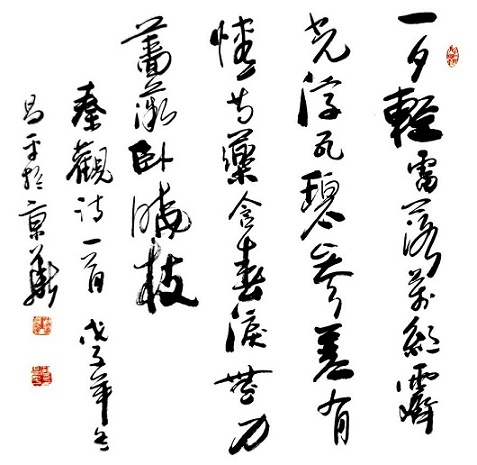 一夕輕雷落萬絲霽
光浮瓦碧參差有
情芍藥含春淚無力
薔薇臥曉枝
秦觀詩一首 戊子年
昌平於京華